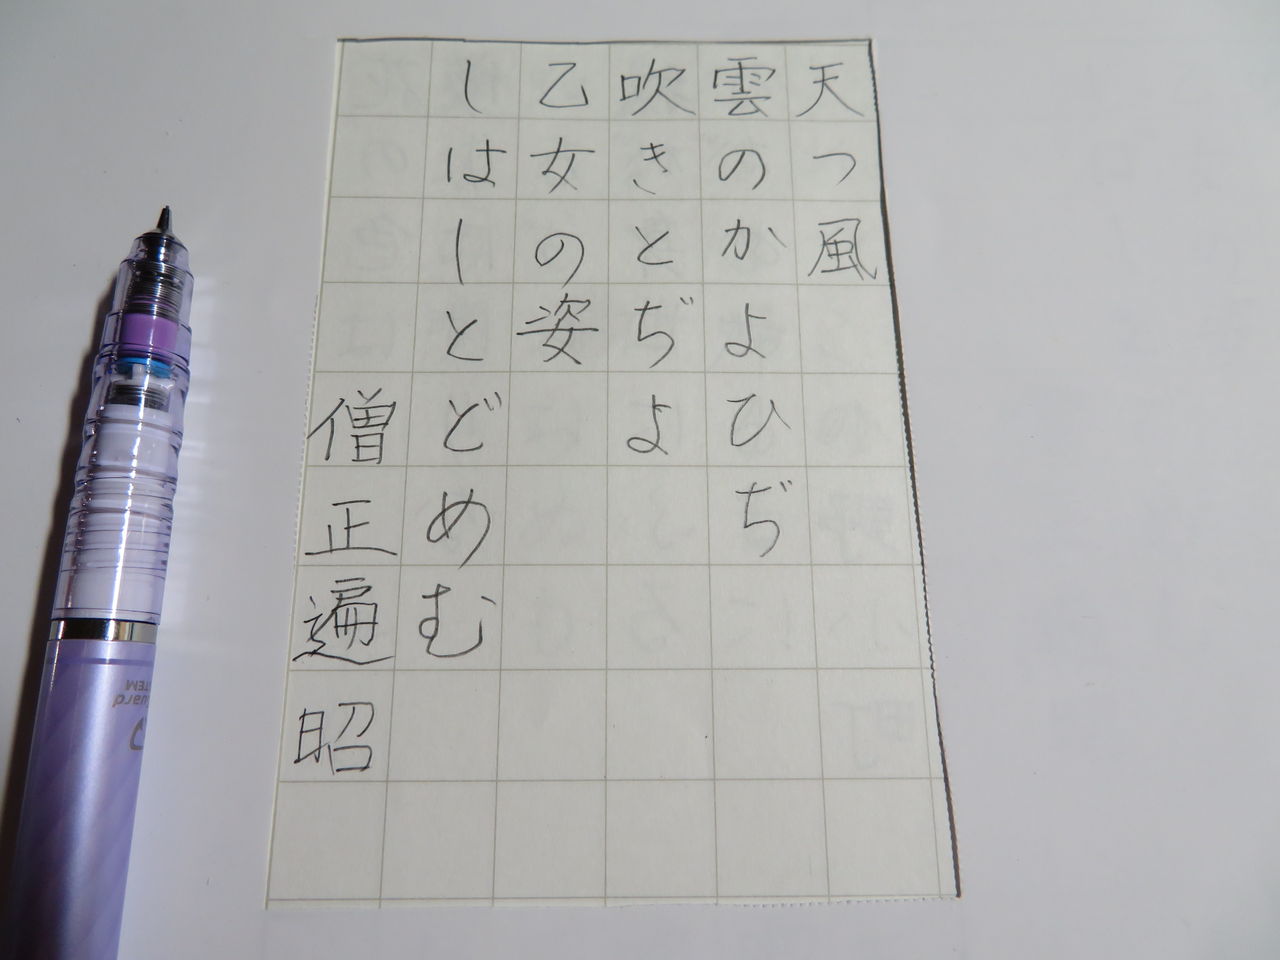 天つ風
雲のかよひぢ
吹きとぢよ
乙女の姿
しはしとどめむ
僧正遍昭